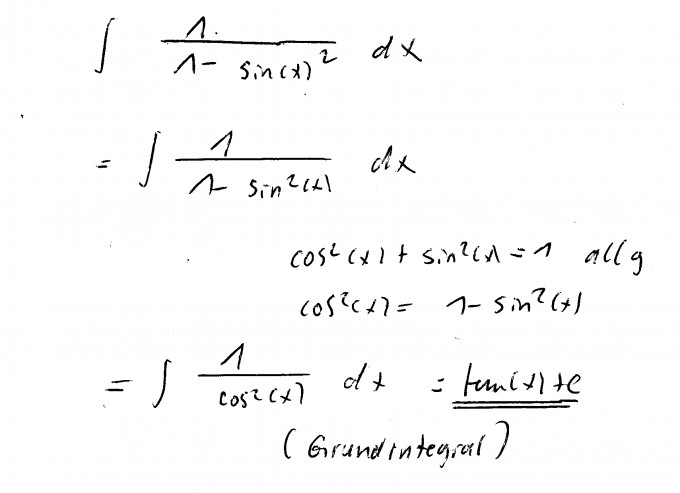 ∫ 1/(1 - sin(x)²) dx
= ∫ 1/(1 - sin²(x)) dx
cos²(x) + sin²(x) = 1 allg
cos²(x) = 1 - sin²(x)
= ∫ 1/cos²(x) dx = tan(x) + c
(Grundintegral)